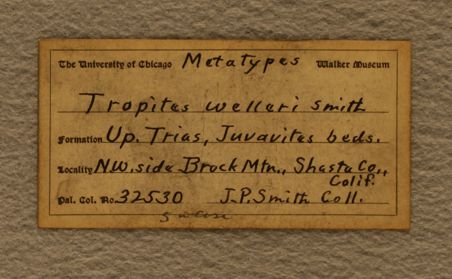 The University of Chicago Metatypes Walker Museum
Tropites welleri Smith
Formation Up. Trias, Juvavites beds.
Locality N.W. side Brock Mtn., Shasta Co.,
Calif.
Pal. Col. No. 32530 J.P. Smith Coll.
5